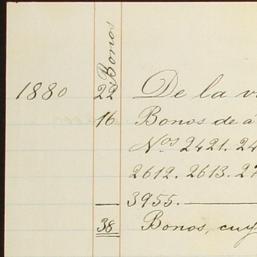 Bonos
1880 22 De la v
16 Bonos de á
Nos 2421. 24
2612. 2613. 27
3955.
38 Bonos, cuy